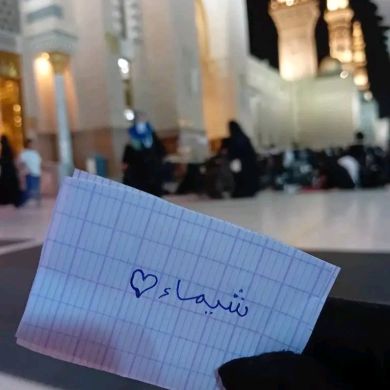 شيماء ♡